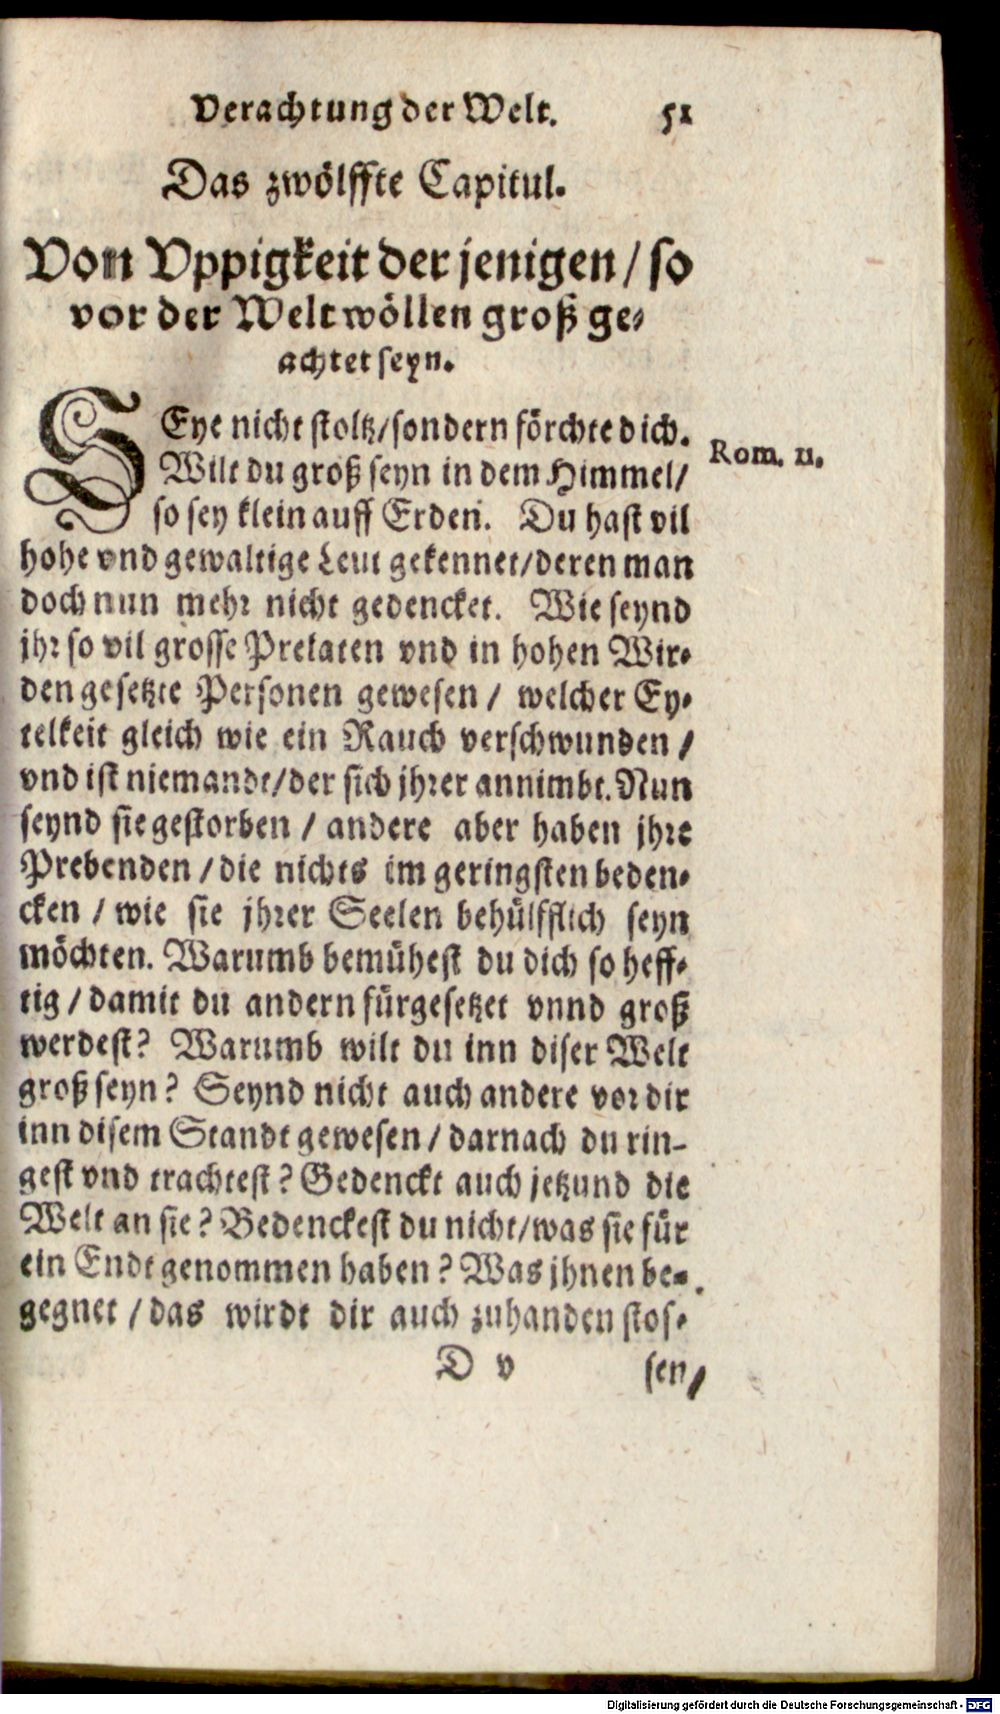 Verachtung der Welt. 51
Das zwölffte Capitul.
Von Vppigkeit der jenigen / so
vor der Welt wöllen groß ge-
achtet seyn.
SEye nicht stoltz / sondern förchte dich.
Rom. 11.
Wilt du groß seyn in dem Himmel /
so sey klein auff Erden. Du hast vil
hohe vnd gewaltige Leut gekennet / deren man
doch nun mehr nicht gedencket. Wie seynd
jhr so vil grosse Prelaten vnd in hohen Wir-
den gesetzte Personen gewesen / welcher Ey-
telkeit gleich wie ein Rauch verschwunden /
vnd ist niemandt / der sich jhrer annimbt. Nun
seynd sie gestorben / andere aber haben jhre
Prebenden / die nichts im geringsten beden-
cken / wie sie jhrer Seelen behülfflich seyn
möchten. Warumb bemühest du dich so heff-
tig / damit du andern fürgesetzet vnnd groß
werdest? Warumb wilt du inn diser Welt
groß seyn? Seynd nicht auch andere vor dir
inn disem Standt gewesen / darnach du rin-
gest vnd trachtest? Gedenckt auch jetzund die
Welt an sie? Bedenckest du nicht / was sie für
ein Endt genommen haben? Was jhnen be-
gegnet / das wirdt dir auch zuhanden stos-
D v sen /
Digitalisierung gefördert durch die Deutsche Forschungsgemeinschaft - DFG